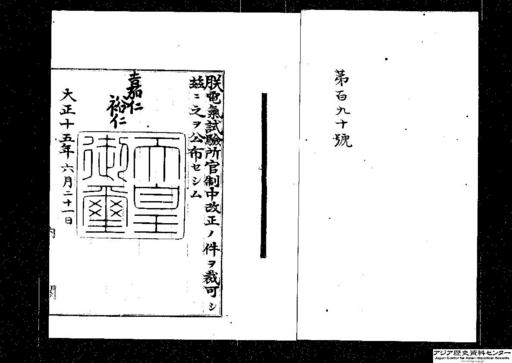 第百九十號
朕電氣試驗所官制中改正ノ件ヲ裁可シ
茲ニ之ヲ公布セシム
嘉仁
裕仁
天皇
御璽
大正十五年六月二十一日
内閣
アジア歴史資料センター
Japan Center for Asian Historical Records